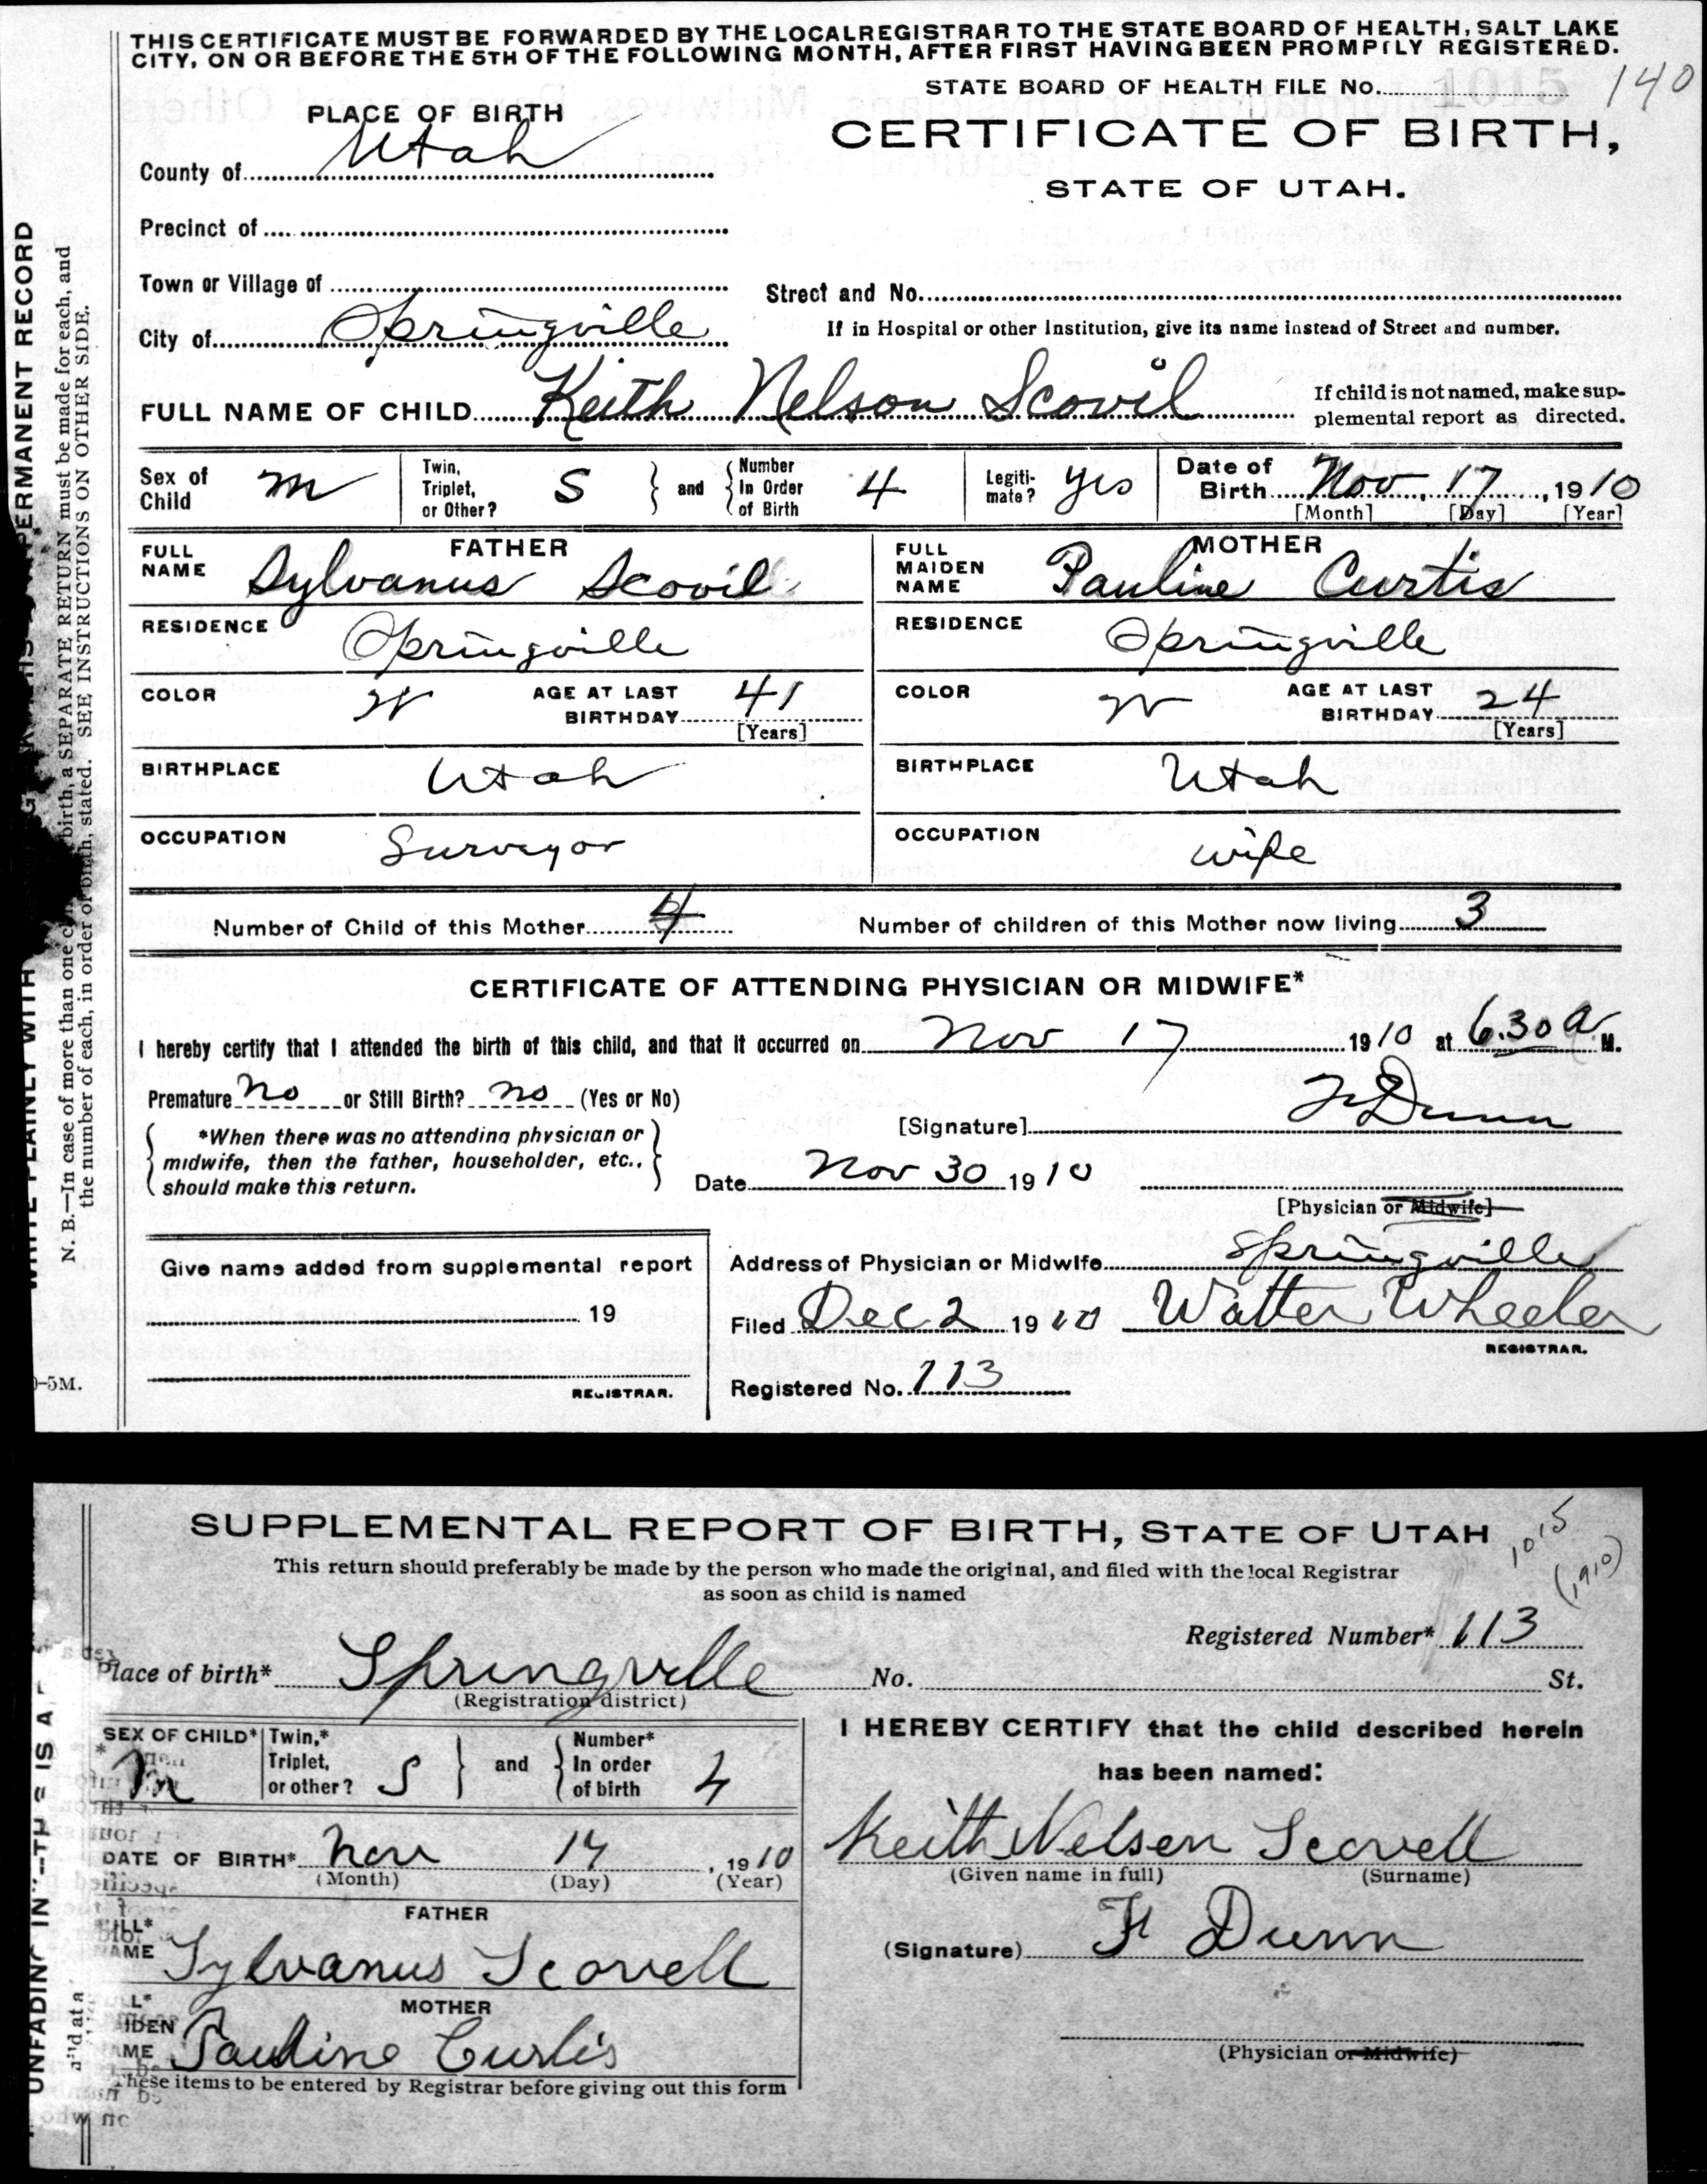 THIS CERTIFICATE MUST BE FORWARDED BY THE LOCALREGISTRAR TO THE STATE BOARD OF HEALTH, SALT LAKE
CITY, ON OR BEFORE THE 5TH OF THE FOLLOWING MONTH, AFTER FIRST HAVING BEEN PROMPTLY REGISTERED.
STATE BOARD OF HEALTH FILE No. 1015 140
PLACE OF BIRTH
CERTIFICATE OF BIRTH,
STATE OF UTAH.
County of Utah
Precinct of
Town or Village of
Street and No.
City of Springville
If in Hospital or other Institution, give its name instead of Street and number.
FULL NAME OF CHILD Keith Nelson Scovil
If child is not named, make sup-
plemental report as directed.
Sex of Child m
Twin, Triplet, or Other? S and Number In Order of Birth 4
Legiti-mate? yes
Date of Birth Nov. 17, 1910
[Month] [Day] [Year]
FATHER
FULL NAME Sylvanus Scovil
RESIDENCE Springville
COLOR W AGE AT LAST BIRTHDAY 41
[Years]
BIRTHPLACE Utah
OCCUPATION Surveyor
MOTHER
FULL MAIDEN NAME Pauline Curtis
RESIDENCE Springville
COLOR W AGE AT LAST BIRTHDAY 24
[Years]
BIRTHPLACE Utah
OCCUPATION wife
Number of Child of this Mother 4 Number of children of this Mother now living 3
CERTIFICATE OF ATTENDING PHYSICIAN OR MIDWIFE*
I hereby certify that I attended the birth of this child, and that it occurred on Nov 17 1910 at 6.30 a M.
Premature no or Still Birth? no (Yes or No)
*When there was no attending physician or
midwife, then the father, householder, etc.,
should make this return.
[Signature] F Dunn
Date Nov 30 1910
[Physician or Midwife]
Give name added from supplemental report
19
REGISTRAR.
Address of Physician or Midwife Springville
Filed Dec 2 1910 Walter Wheeler
REGISTRAR.
Registered No. 113
PERMANENT RECORD
WRITE PLAINLY WITH
N. B.—In case of more than one birth, a SEPARATE RETURN must be made for each, and
the number of each, in order of birth, stated. SEE INSTRUCTIONS ON OTHER SIDE.
–5M.
SUPPLEMENTAL REPORT OF BIRTH, STATE OF UTAH
1015
(1910)
This return should preferably be made by the person who made the original, and filed with the local Registrar
as soon as child is named
Registered Number* 113
Place of birth* Springville No. St.
(Registration district)
SEX OF CHILD* m
Twin,* Triplet, or other? S and Number* In order of birth 4
DATE OF BIRTH* Nov 17, 1910
(Month) (Day) (Year)
FATHER
NAME Sylvanus Scovell
MOTHER
Pauline Curtis
These items to be entered by Registrar before giving out this form
I HEREBY CERTIFY that the child described herein
has been named:
Keith Nelsen Scovell
(Given name in full) (Surname)
(Signature) F Dunn
(Physician or Midwife)
UNFADING IN